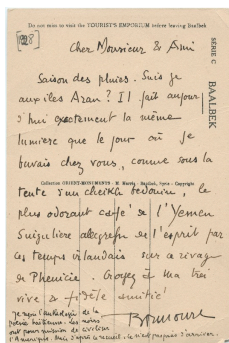 Do not miss to visit the TOURIST'S EMPORIUM before leaving Baalbek
[1928]
SÉRIE C
BAALBEK
Cher Monsieur & Ami
Saison des pluies. Suis-je
aux îles Aran? Il fait aujour
d'hui exactement la même
lumière que le jour où je
buvais chez vous, comme sous la
Collection ORIENT-MONUMENTS - Baalbek, Syria - Copyright
tente d'un cheikh bédouin, le
plus odorant café de l'Yemen
Singulière allégresse de l'esprit par
ces temps irlandais sur ce rivage
de Phénicie. Croyez à ma très
vive & fidèle amitié!
Bounoure
Je reçois l'anthologie de la
poésie haïtienne. Les noirs
ont pour mission de civiliser
l'Amérique. Mais d'après ce recueil, ce n'est pas près d'arriver.